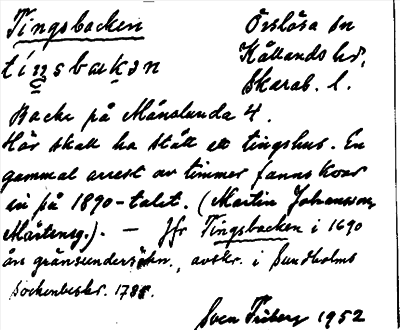 Tingsbacken Örslösa sn
Kållands hd,
tiŋsbakən Skarab. l.
Backe på Månslunda 4.
Här skall ha stått ett tingshus. En
gammal arrest av timmer fanns kvar
in på 1890-talet. (Martin Johansson,
Mårtensg.). — Jfr Tingsbacken i 1690
års gränsundersökn., avskr. i Sundholms
Sockenbeskr. 1785.
Sven Friberg 1952